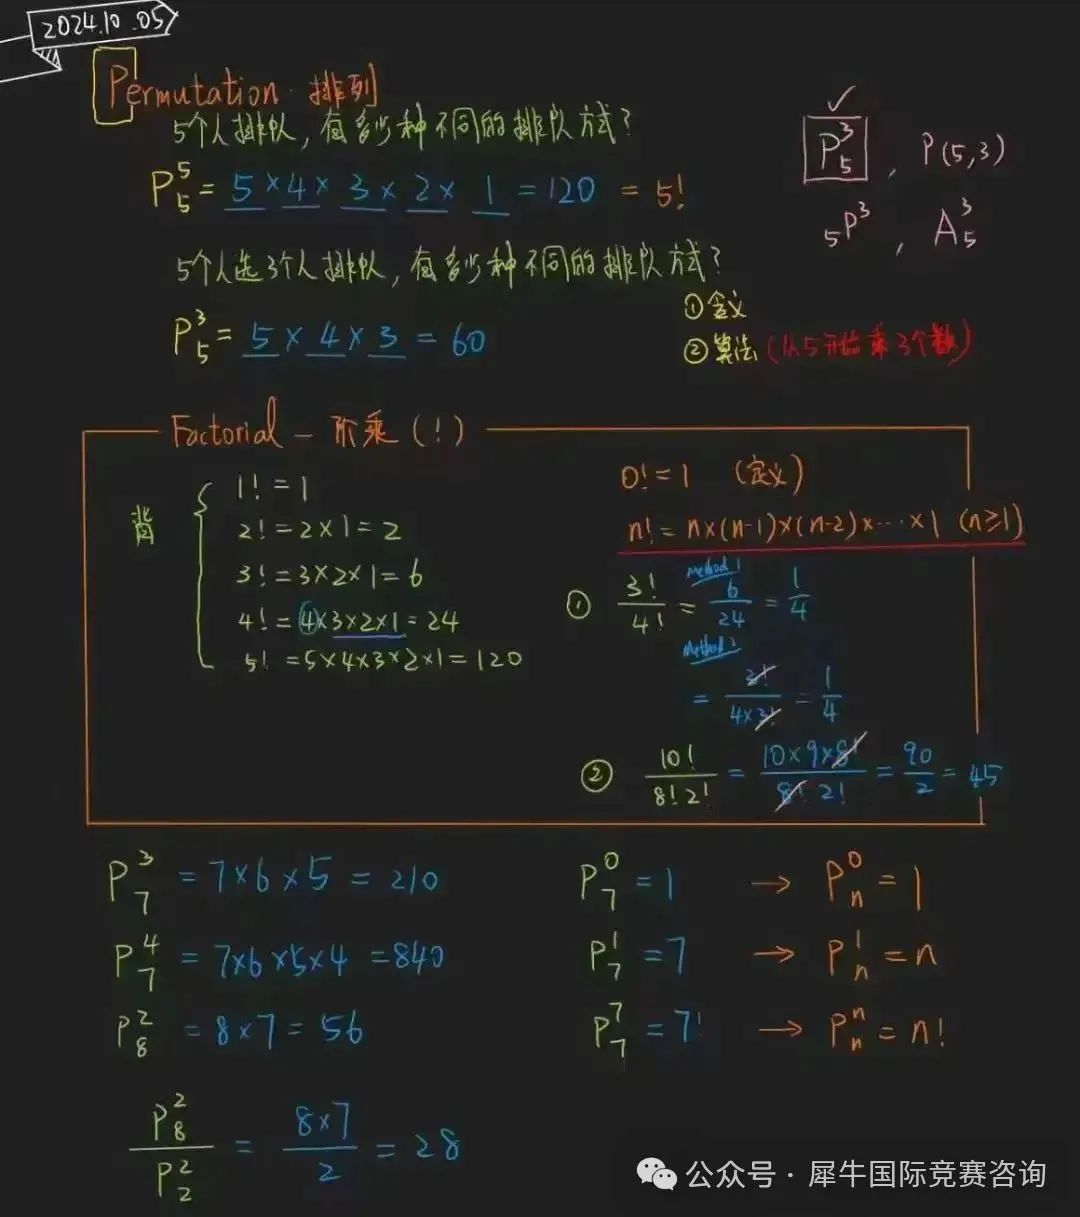 2024.10.05
Permutation 排列
5个人排队,有多少种不同的排队方式?
P₅⁵ = 5 × 4 × 3 × 2 × 1 = 120 = 5!
✓
P₅³ , P(5,3)
₅P³ , A₅³
5个人选3个人排队,有多少种不同的排队方式?
P₅³ = 5 × 4 × 3 = 60
①含义
②算法(从5开始乘3个数)
Factorial — 阶乘(!)
背
1! = 1
2! = 2×1 = 2
3! = 3×2×1 = 6
4! = 4×3×2×1 = 24
5! = 5×4×3×2×1 = 120
0! = 1 (定义)
n! = n×(n-1)×(n-2)×…×1 (n≥1)
Method 1
① 3!/4! = 6/24 = 1/4
Method 2
= 3!/(4×3!) = 1/4
② 10!/(8!2!) = (10×9×8!)/(8!2!) = 90/2 = 45
P₇³ = 7×6×5 = 210
P₇⁴ = 7×6×5×4 = 840
P₈² = 8×7 = 56
P₈²/P₂² = (8×7)/2 = 28
P₇⁰ = 1 → Pₙ⁰ = 1
P₇¹ = 7 → Pₙ¹ = n
P₇⁷ = 7! → Pₙⁿ = n!
公众号 · 犀牛国际竞赛咨询